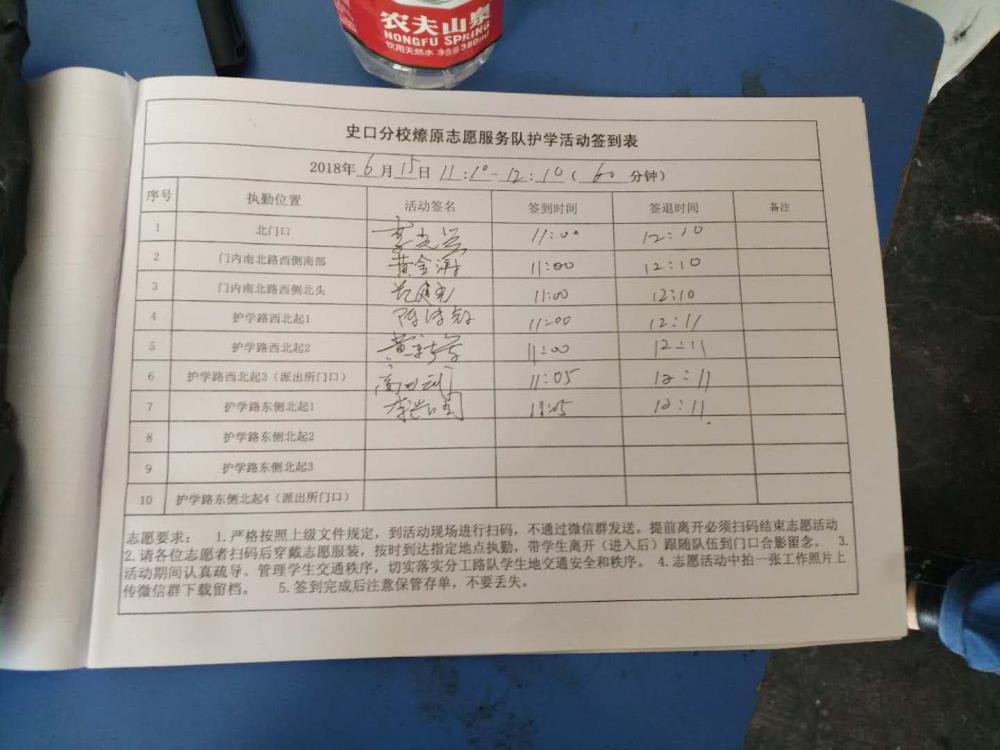 农夫山泉
NONGFU SPRING
饮用天然水 净含量380ml
史口分校燎原志愿服务队护学活动签到表
2018年6月15日 11:10-12:10(60分钟)
序号 执勤位置 活动签名 签到时间 签退时间 备注
1 北门口 11:00 12:10
2 门内南北路西侧南部 黄金 11:00 12:10
3 门内南北路西侧北头 11:00 12:10
4 护学路西北起1 陈 11:00 12:11
5 护学路西北起2 黄 11:00 12:11
6 护学路西北起3(派出所门口) 高 11:05 12:11
7 护学路东侧北起1 李 11:05 12:11
8 护学路东侧北起2
9 护学路东侧北起3
10 护学路东侧北起4(派出所门口)
志愿要求: 1.严格按照上级文件规定,到活动现场进行扫码,不通过微信群发送。提前离开必须扫码结束志愿活动
2.请各位志愿者扫码后穿戴志愿服装,按时到达指定地点执勤,带学生离开(进入后)跟随队伍到门口合影留念。 3.
活动期间认真疏导、管理学生交通秩序,切实落实分工路队学生地交通安全和秩序。 4.志愿活动中拍一张工作照片上
传微信群下载留档。 5.签到完成后注意保管存单,不要丢失。